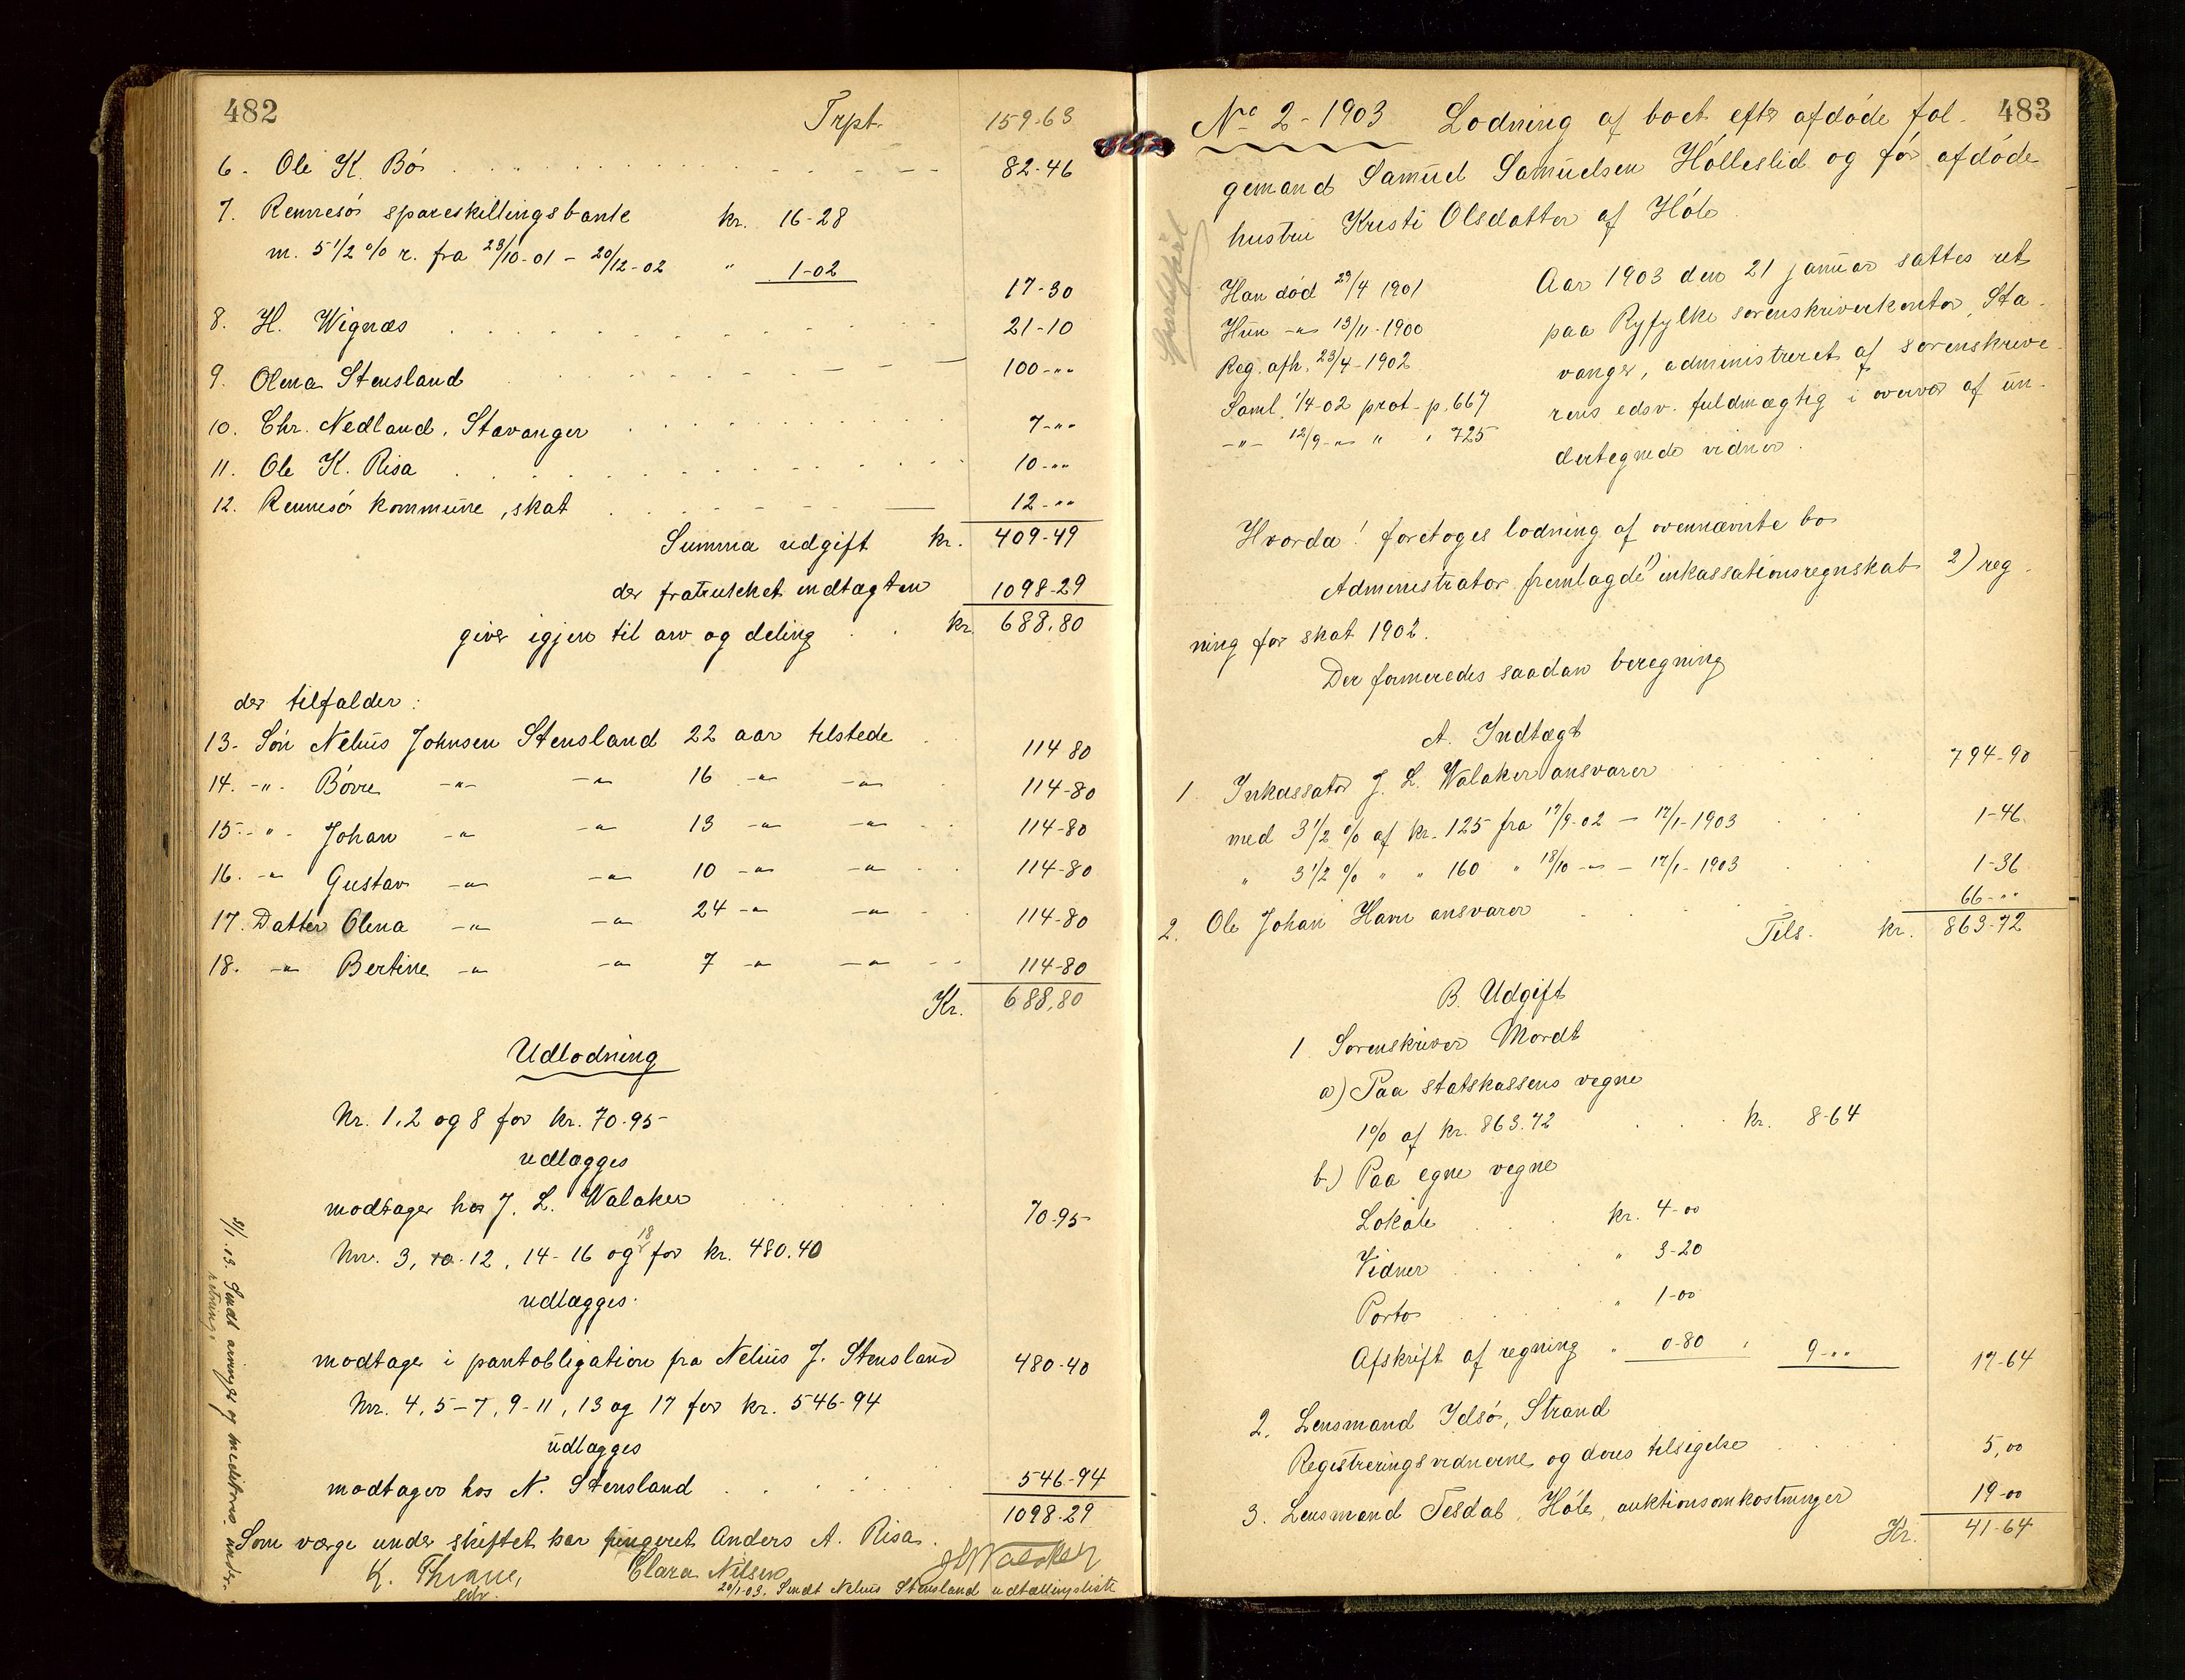 482
Trpt. 159-63
6. Ole K. Bø 82-46
7. Rennesø spareskillingsbank kr. 16-28
m. 5 1/2 % r. fra 23/10-01 - 20/12-02 " 1-02
17-30
8. H. Wignæs 21-10
9. Olena Stensland 100-""
10. Chr. Nedland, Stavanger 7-""
11. Ole K. Risa 10-""
12. Rennesø kommune, skat 12-""
Summa udgift kr. 409-49
der fratrukket indtægten 1098-29
giver igjen til arv og deling kr. 688,80
der tilfalder:
13. Søn Nelius Johnsen Stensland 22 aar tilstede 114 80
14. -"- Børre -"- -"- 16 -"- -"- 114-80
15. -"- Johan -"- -"- 13 -"- -"- 114-80
16. -"- Gustav -"- -"- 10 -"- -"- 114-80
17. Datter Olena -"- -"- 24 -"- -"- 114-80
18. -"- Bertine -"- -"- 7 -"- -"- 114-80
Kr. 688,80
Udlodning
Nr. 1, 2 og 8 for kr. 70-95
udlægges
modtager hos J. L. Walaker 70-95
Nr. 3, 12, 14-16 og 18 for kr. 480.40
udlægges
modtager i pantobligation fra Nelius J. Stensland 480-40
Nr. 4, 5-7, 9-11, 13 og 17 for kr. 546-94
udlægges
modtager hos N. Stensland 546-94
1098-29
Som verge under skiftet har fungeret Anders A. Risa.
K. Thrane, Clara Nilsen J L Walaker
edv.
20/1-03. Sendt Nelius Stensland udtællingsliste
8/1.03. Sendt og under-
retning.
No 2-1903 Lodning af boet efter afdøde fol- 483
gemand Samuel Samuelsen Hølleslid og før afdøde
hustru Kristi Olsdatter af Høle
Han død 29/4 1901
Hun -"- 13/11-1900
Reg. afh. 23/4-1902
Saml. 1/4-02 prot. p. 667
-"- 12/9-"- " " 725
Aar 1903 den 21 januar sattes ret
paa Ryfylke sorenskriverkontor, Sta-
vanger, administreret af sorenskrive-
rens edsv. fuldmægtig i overvær af un-
dertegnede vidner.
Hvorda! foretoges lodning af ovennævnte bo
Administrator fremlagde 1) inkassationsregnskab 2) reg-
ning for skat 1902.
Der formeredes saadan beregning
A. Indtægt
1. Inkassator J. L. Walaker ansvarer 794-90
med 3 1/2 % af kr. 125 fra 17/9-02 - 17/1-1903 1-46
" 3 1/2 % " " 160 " 18/10 -"- - 17/1-1903 1-36
2. Ole Johan Havn ansvarer 66-""
Tils. kr. 863-72
B. Udgift
1. Sorenskriver Mordt
a) Paa statskassens vegne
1% af kr. 863.72 kr. 8-64
b) Paa egne vegne
Lokale kr. 4-00
Vidner " 3-20
Porto " 1-00
Afskrift af regning " 0-80 " 9-"" 17-64
2. Lensmand Idsø, Strand
Registreringsvidnerne og deres tilsigelse 5,00
3. Lensmand Tesdal, Høle, auktionsomkostninger 19-00
Kr. 41-64